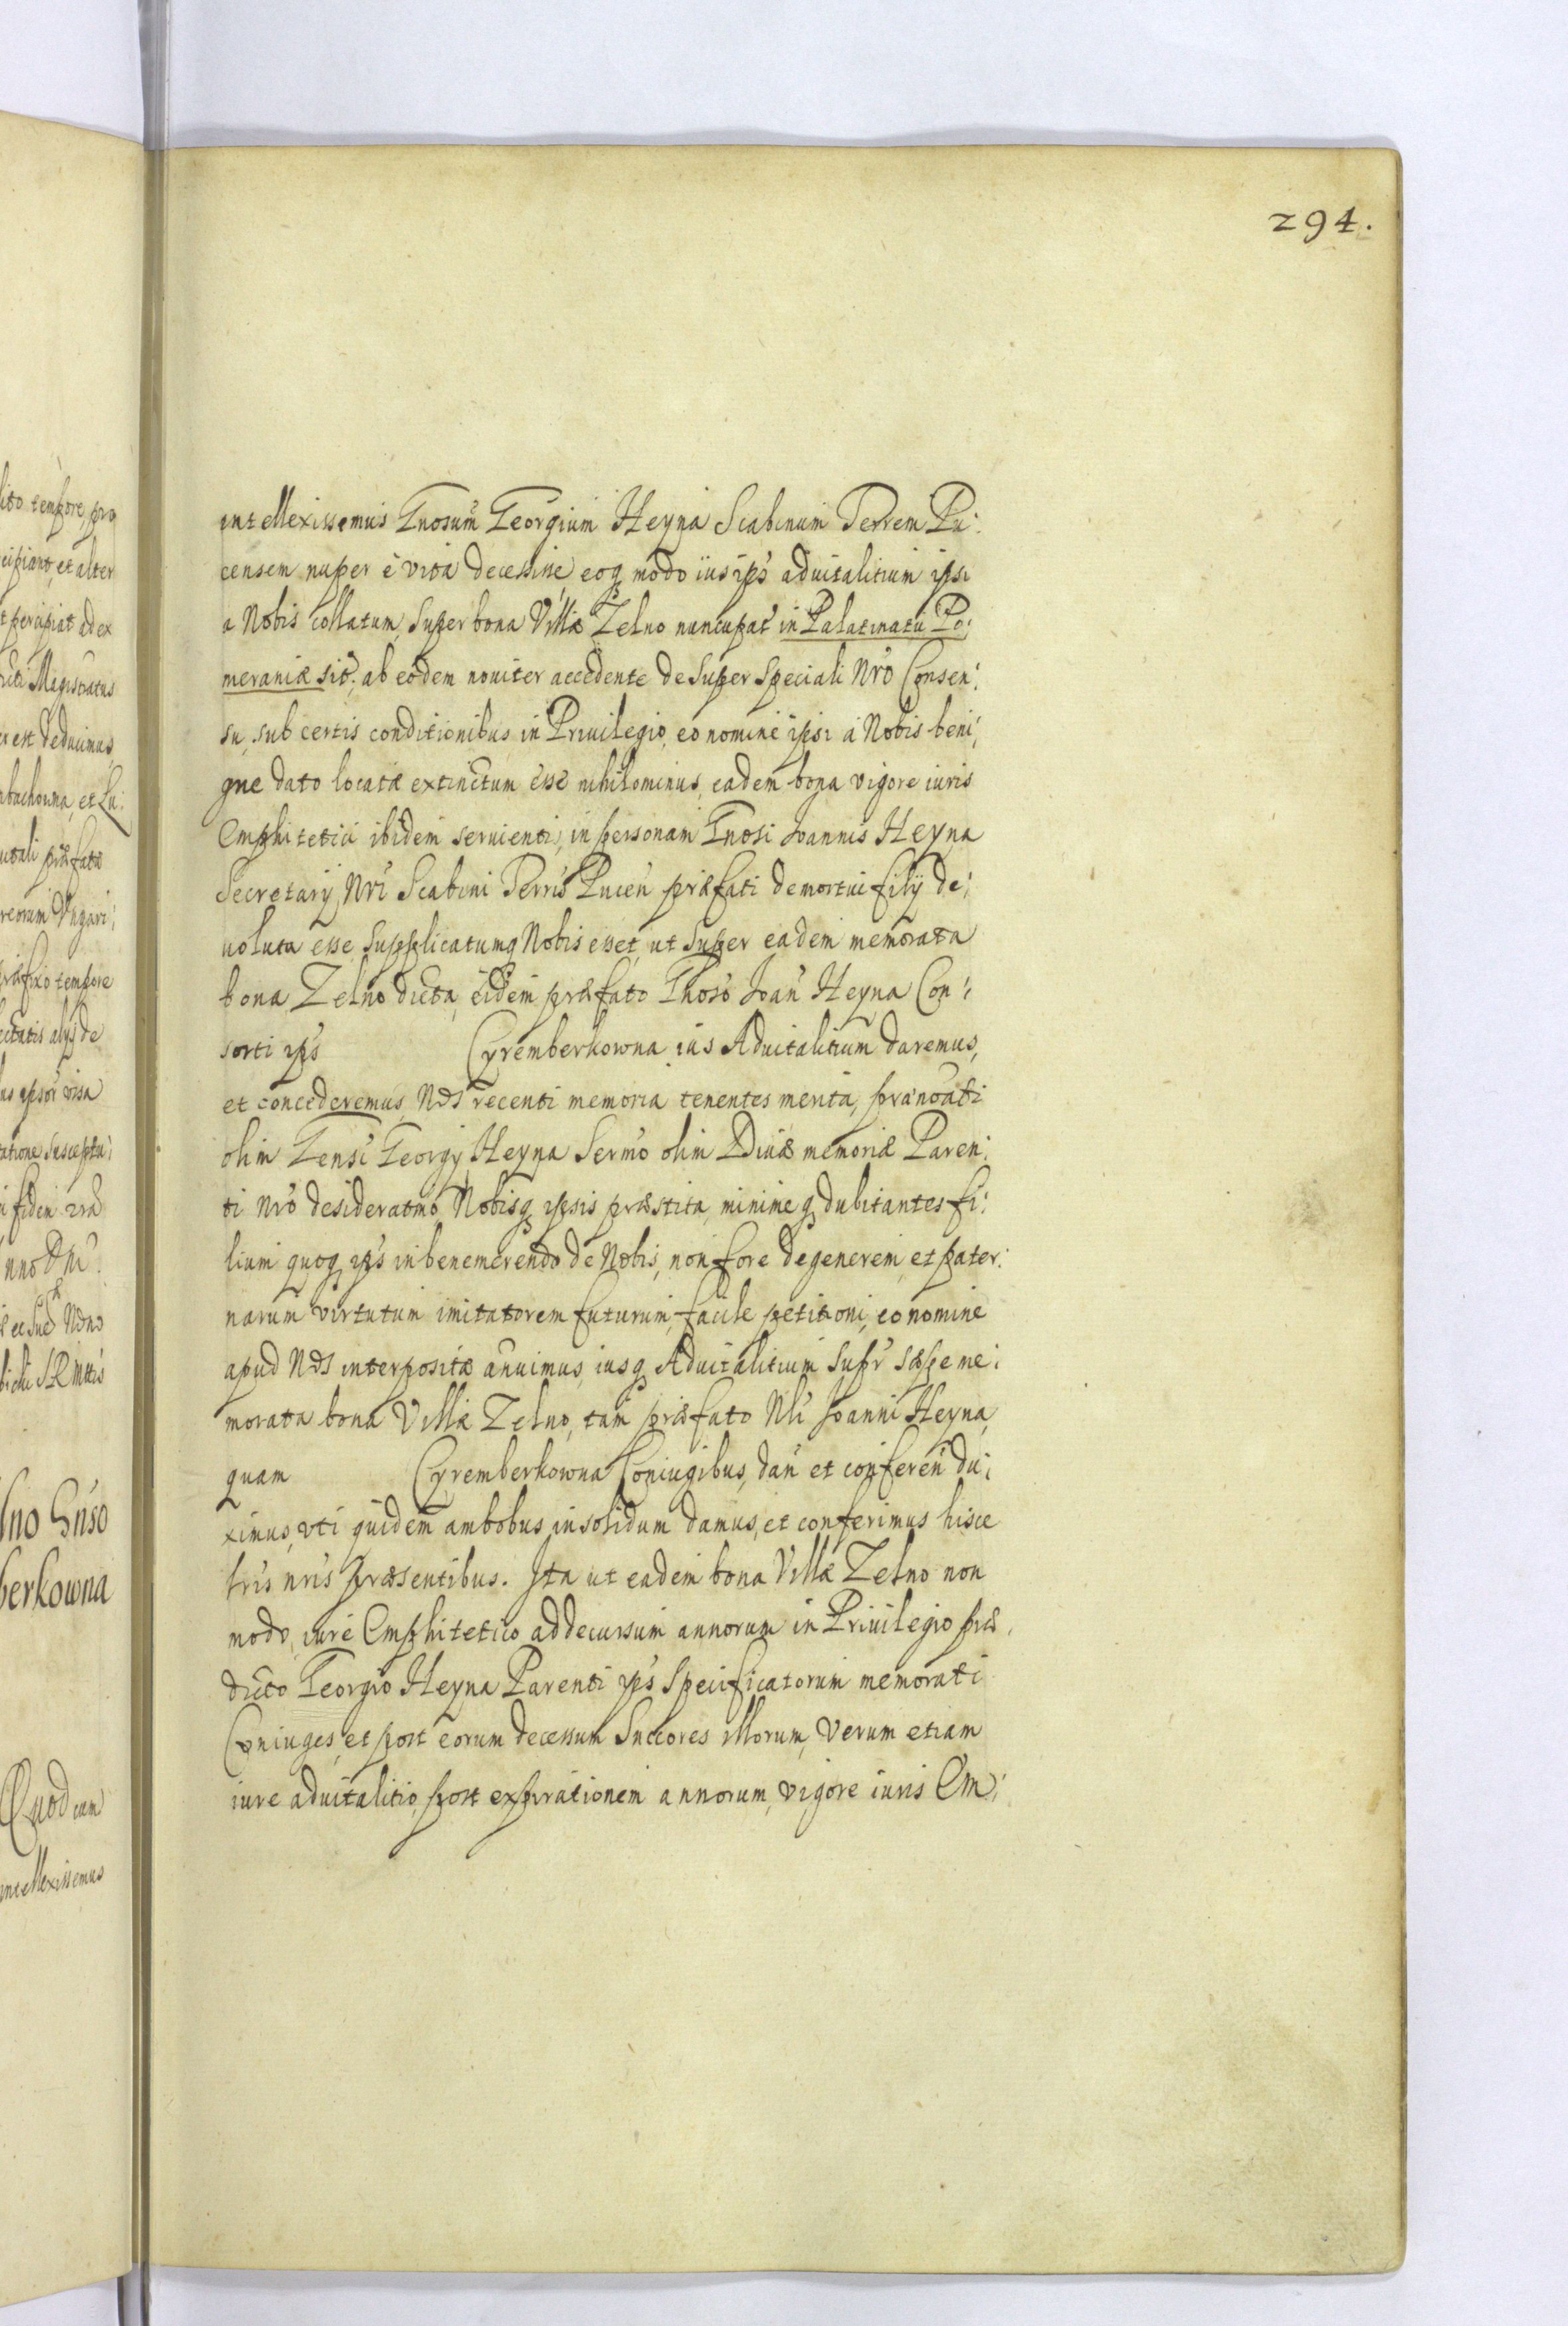 294.
intellexissemus Gnosum Georgium Heyna Scabinum Terrem Pu:
censem nuper e vita decessisse eoq modo ius ips aduitalitium ipsi
a Nobis collatum, super bona Villæ Zelno nuncupat in Palatinatu Po:
meraniæ sit: ab eodem nouiter accedente desuper speciali Nro Consen:
su, sub certis conditionibus in Priuilegio, eo nomine ipsi a Nobis beni:
gne dato locatæ extinctum esse nihilominus, eadem bona vigore iuris
Emphitetici ibidem seruienti, in personam Gnosi Joannis Heyna
Secretarij Nri Scabini Terris Pucen præfati demortui filij de:
uoluta esse supplicatumq Nobis esset, ut super eadem memorata
bona Zelno dicta, eidem præfato Gnoso Joan Heyna Con:
sorti ips Cyremberkowna ius Aduitalitium daremus,
et concederemus, Nos recenti memoria tenentes merita, prænoati
olim Gensi Georgij Heyna Sermo olim Diuæ memoriæ Paren:
ti Nro desideratmo Nobisq ipsis præstita, minime q dubitantes fi:
lium quoq ips in benemerendo de Nobis, non fore degenerem, et pater:
narum virtutum imitatorem futurum, facile petitioni, eo nomine
apud Nos interpositæ anuimus, iusq Aduitalitium supr sæpe me:
morata bona Villæ Zelno, tam præfato Nli Joanni Heyna,
quam Cyremberkowna Coniugibus, dan et conferen du:
ximus, vti quidem ambobus in solidum damus, et conferimus hisce
lris nris præsentibus. Ita ut eadem bona Villæ Zelno non
modo, iure Emphitetico ad decursum annorum in Priuilegio præ
dicto Georgio Heyna Parenti ips specificatorum memorati
Coniuges, et post eorum decessum Succores illorum, Verum etiam
iure aduitalitio, post expirationem annorum, vigore iuris Em: